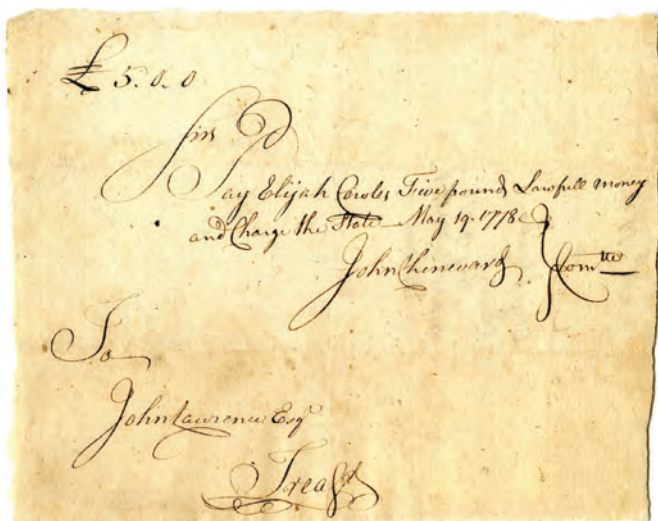 £ 5.0.0
Sir
Pay Elijah Cowles Five pounds Lawfull money
and Charge the State May 19. 1778
John Chenevard } Comtte
To
John Lawrence Esqr
Treasr